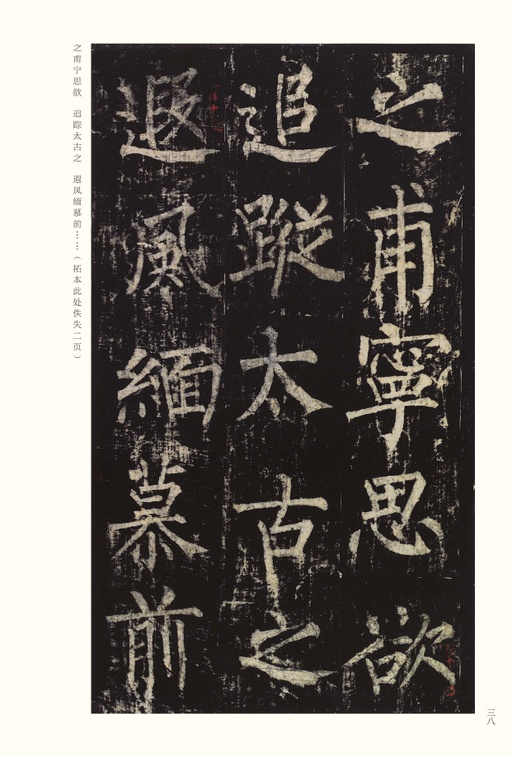 之甫寧思欲
追蹤太古之
遐風緬慕前
之甫宁思欲　追踪太古之　遐风缅慕前……（拓本此处佚失二页）
三八